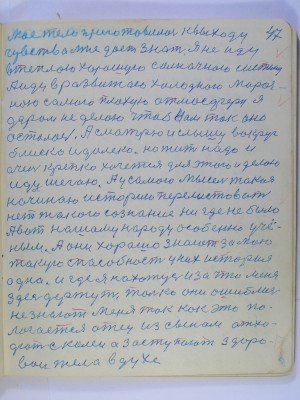 Мое тело приготовилось к выходу 47
чувства мне дает знат, Я не иду
в теплою хорошую солнечного систему
Аиду в развитою холодною мороз-
ною самого плохую атмосферу я
даром не делаю чтоб Вам так оно
осталось. А смотрю и слышу вокруг
близко и далеко. но жит надо и
очен крепко хочется для этого и делаю
иду шагаю. А у самого мысел такая
начинаю историю перелистоват
нет такого сознание ни где не было
Авот нашему народу особенно учё-
ным. А они хорошо знают за мою
такую способност у них история
одна. и где я нахожус и за что меня
здес держут, толко они ошиблис
не знают меня так как это по-
логается отец из сыном отхо-
дят с колеи а заступают здоро-
вои тела в духе